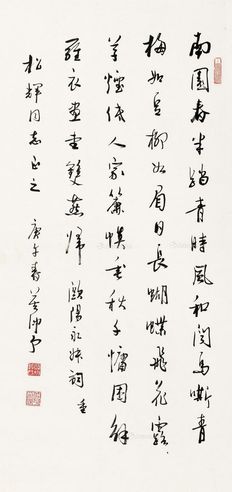 南園春半踏青時風和聞馬嘶青
梅如豆柳如眉日長蝴蝶飛花露
草煙低人家簾幙垂秋千慵困解
羅衣畫堂雙燕歸 歐陽永叔詞
松輝同志正之 庚午春